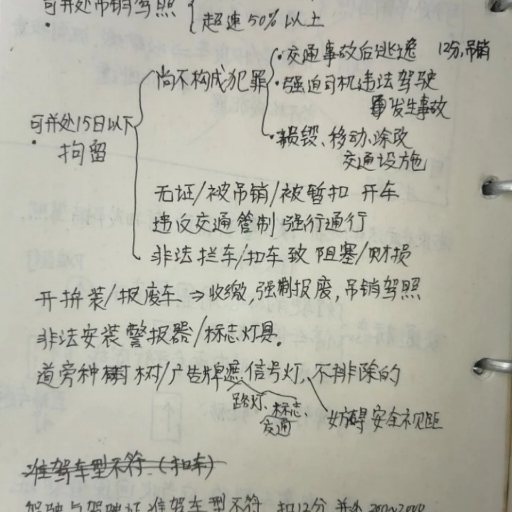 可并处吊销驾照
超速50%以上
尚不构成犯罪
·交通事故后逃逸 12分,吊销
·强迫司机违法驾驶
发生事故
·损毁、移动、涂改
交通设施
·可并处15日以下
拘留
无证/被吊销/被暂扣 开车
违反交通管制 强行通行
非法拦车/扣车致 阻塞/财损
开拼装/报废车 ⇒ 收缴,强制报废,吊销驾照
非法安装警报器/标志灯具。
道旁种树 树/广告牌遮信号灯,不排除的
路灯、标志、
交通
妨碍安全视距
准驾车型不符(扣车)
驾驶与驾驶证准驾车型不符 扣12分